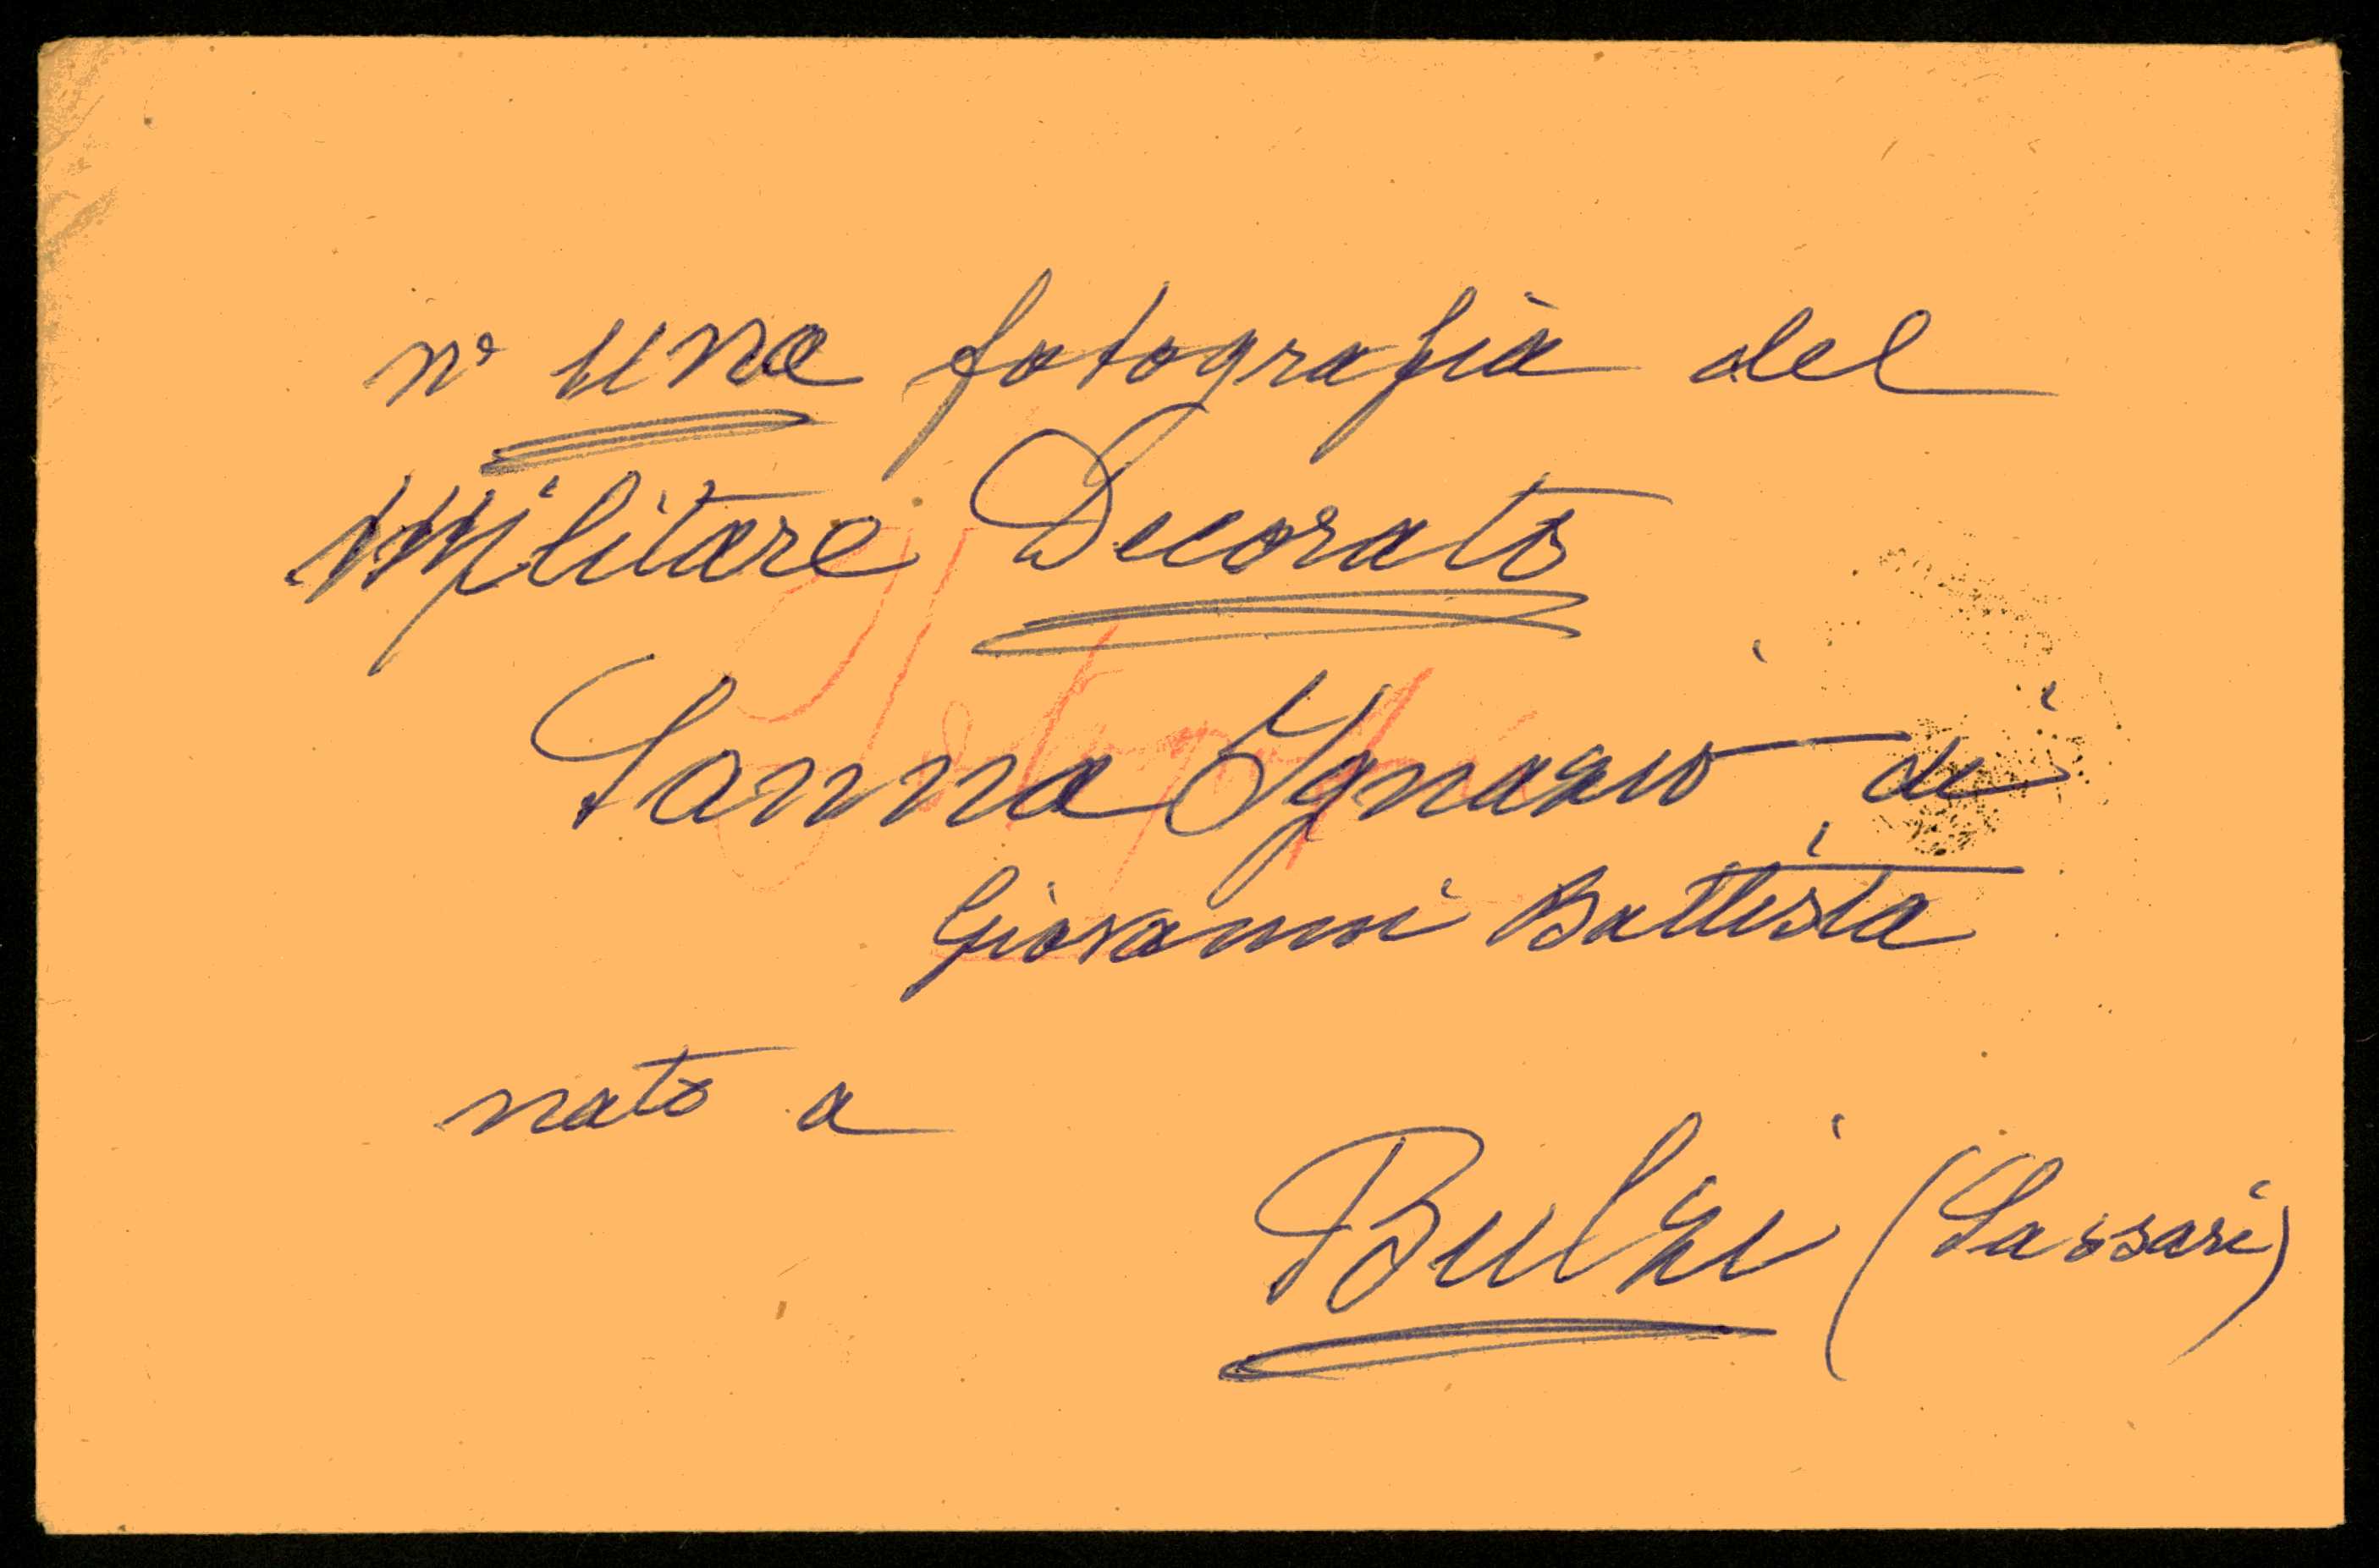 n° una fotografia del
Militare Decorato
Sanna Ignazio di
Giovanni Battista
nato a
Bulzi (Sassari)